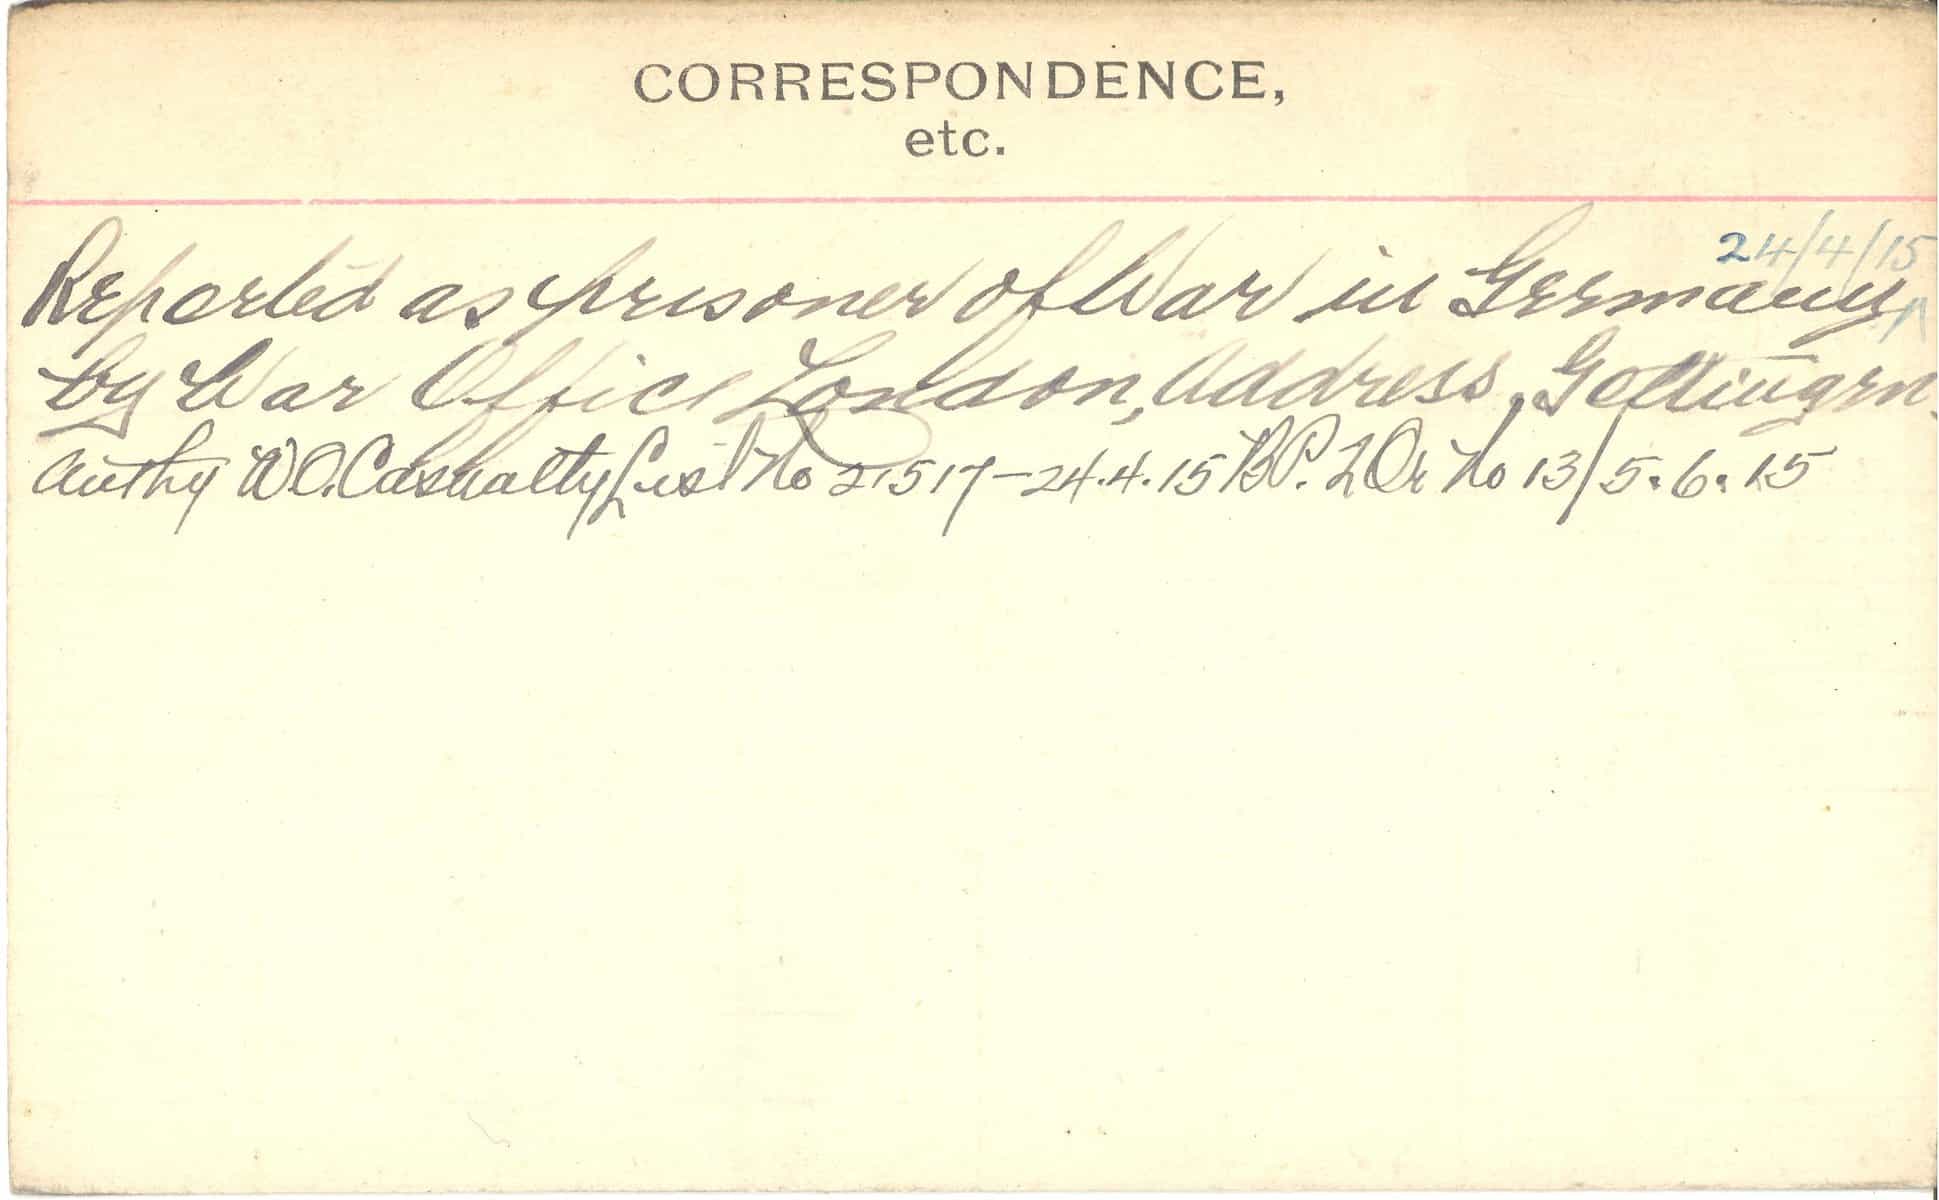 CORRESPONDENCE,
etc.
24/4/15
Reported as prisoner of War in Germany
by War Office London, Address, Gottingen.
Authy W.O. Casualty List No 21517-24.4.15 B.P. 2 Or No 13/5.6.15